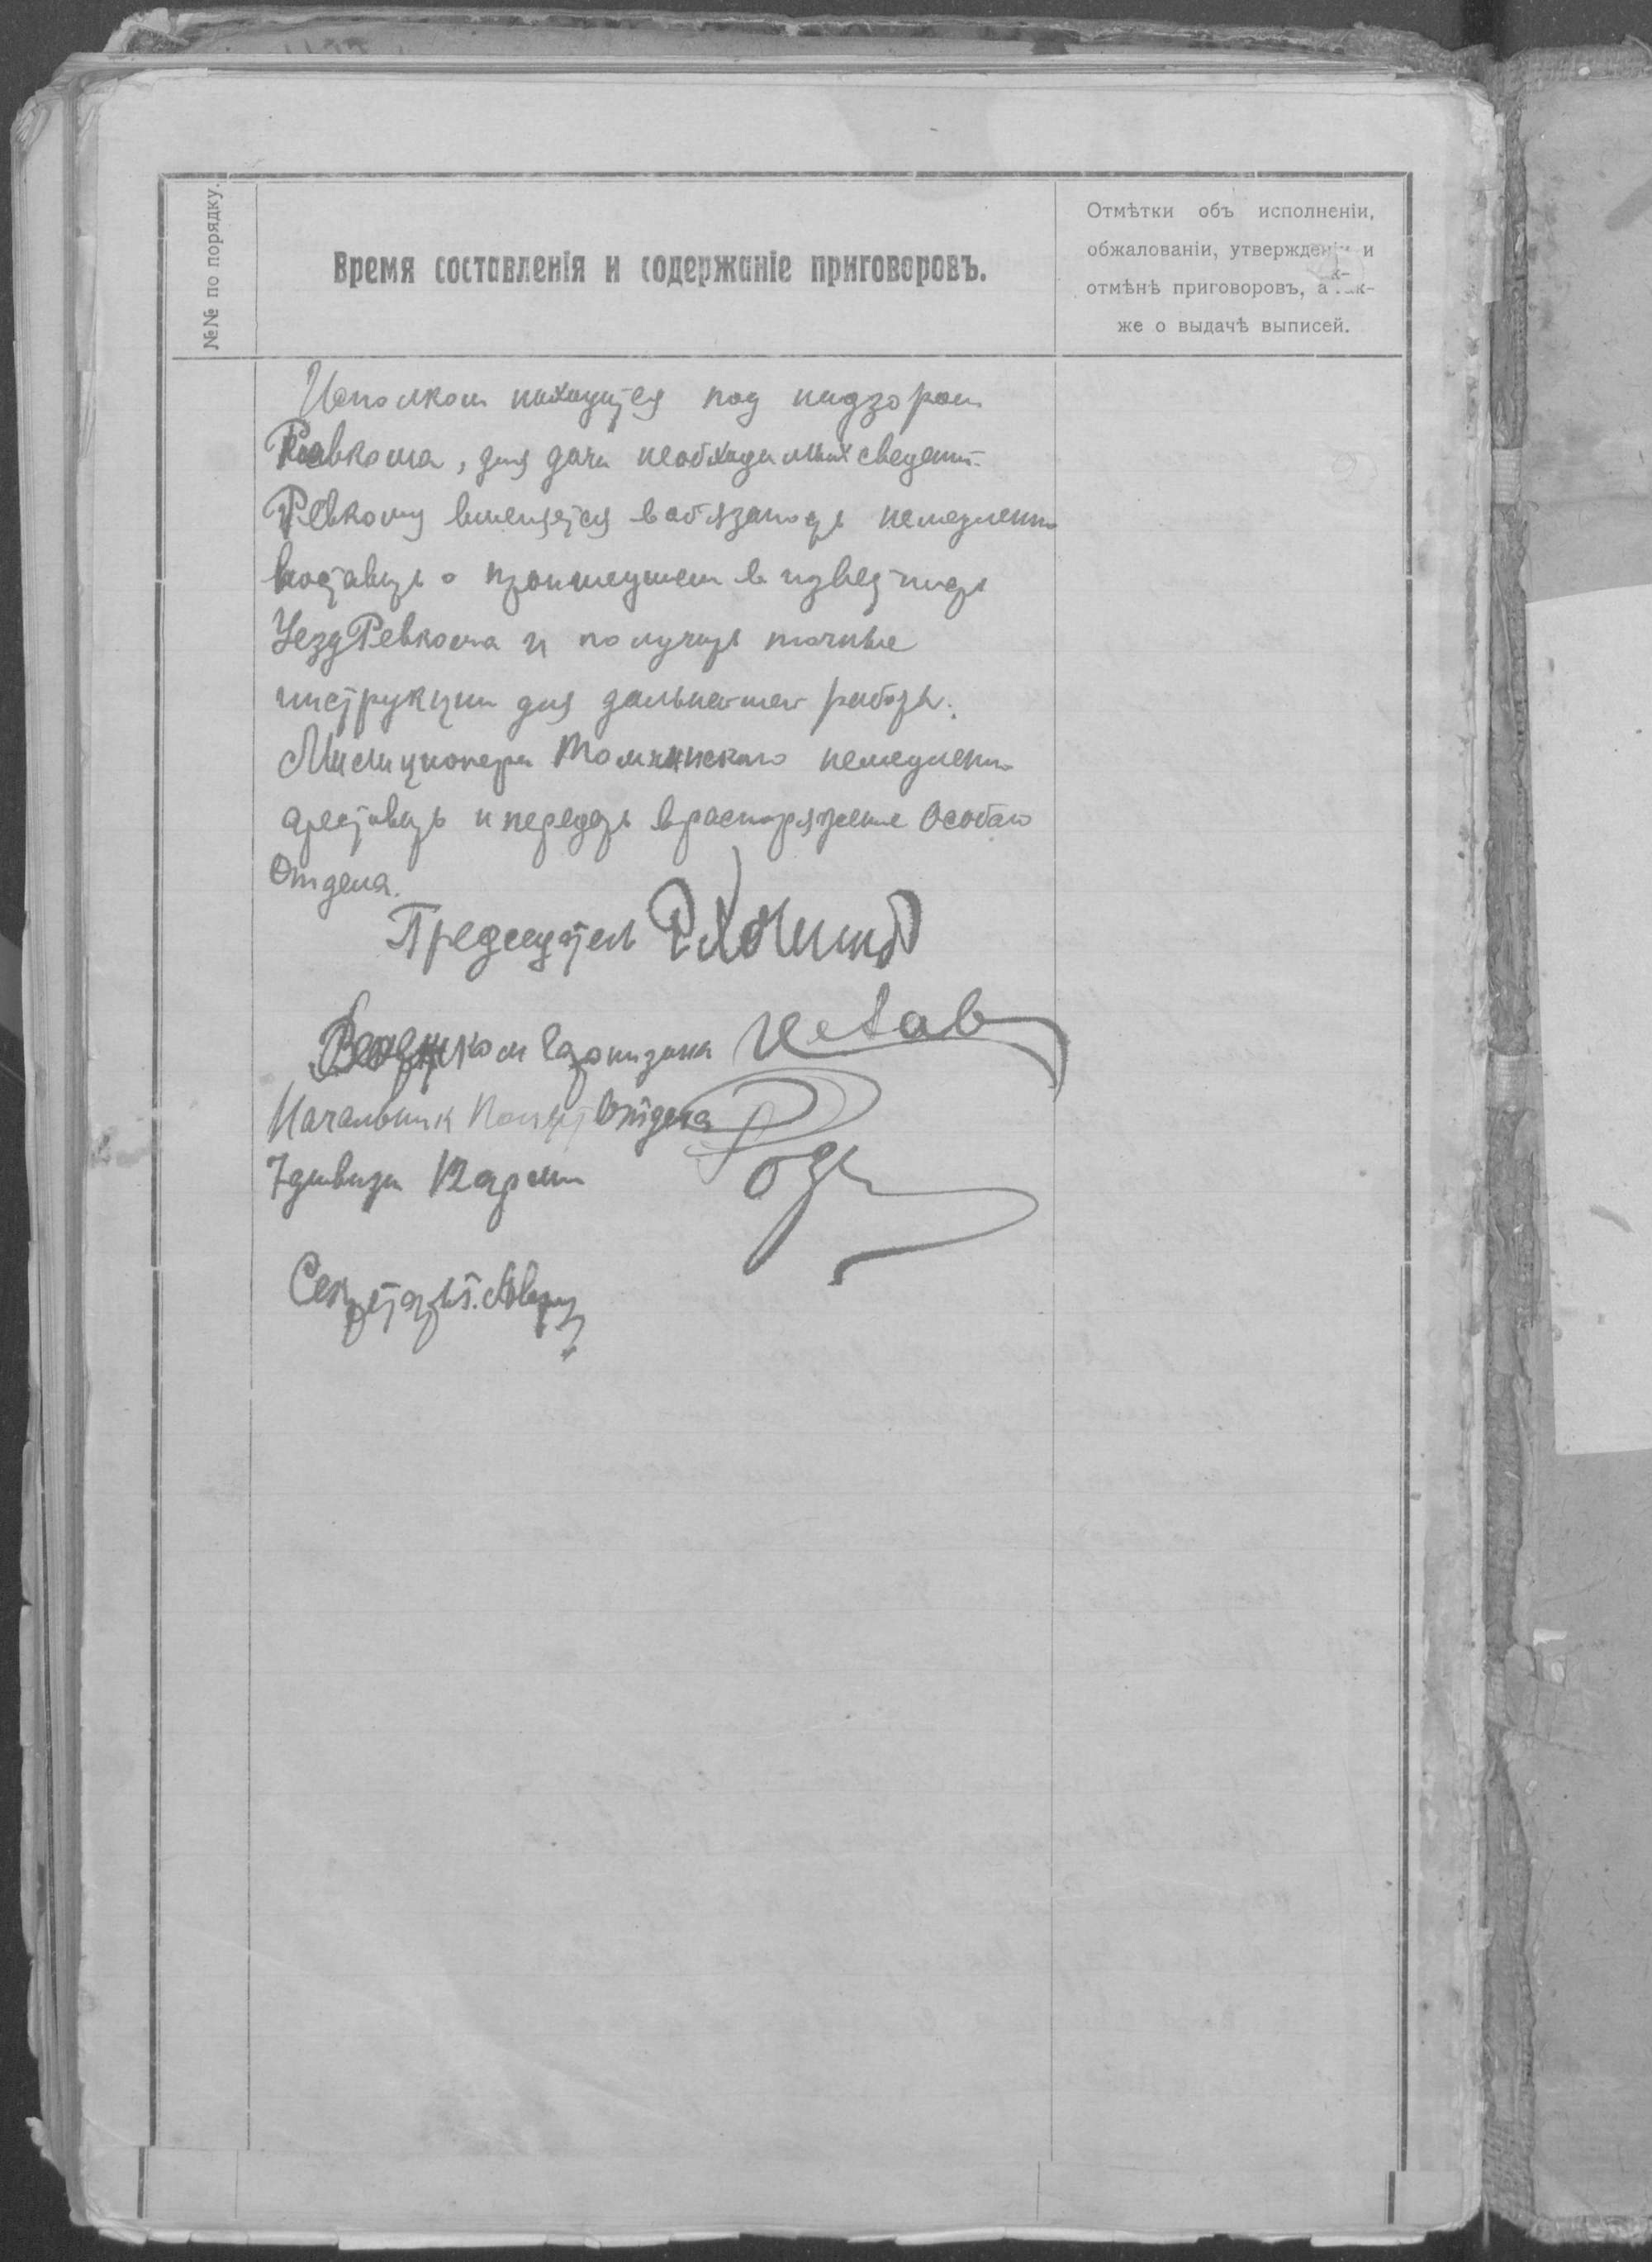 №№ по порядку.
Время составленія и содержаніе приговоровъ.
Отмѣтки объ исполненіи,
обжалованіи, утвержденіи и
отмѣнѣ приговоровъ, а так-
же о выдачѣ выписей.
Исполком находится под надзором
Ревкома, для дачи необходимых сведений.
Ревкому вменяется в обязаность немедленно
поставить о произшедшем в известность
УездРевкома и получить точные
инструкции для дальнейшей работы.
Милиционера немедленно
арестовать и передать в распоряжение Особого
Отдела.
Председатель
ком Гарнизона
Начальник Полит Отдела
7 дивизии
Секретарь